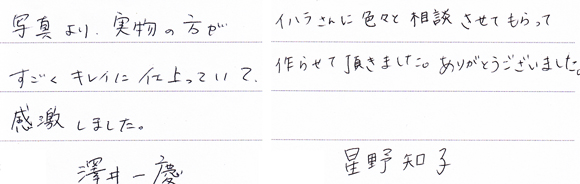 写真より、実物の方が
すごくキレイに仕上っていて、
感激しました。
澤井一慶
イハラさんに色々と相談させてもらって
作らせて頂きました。ありがとうございました。
星野知子